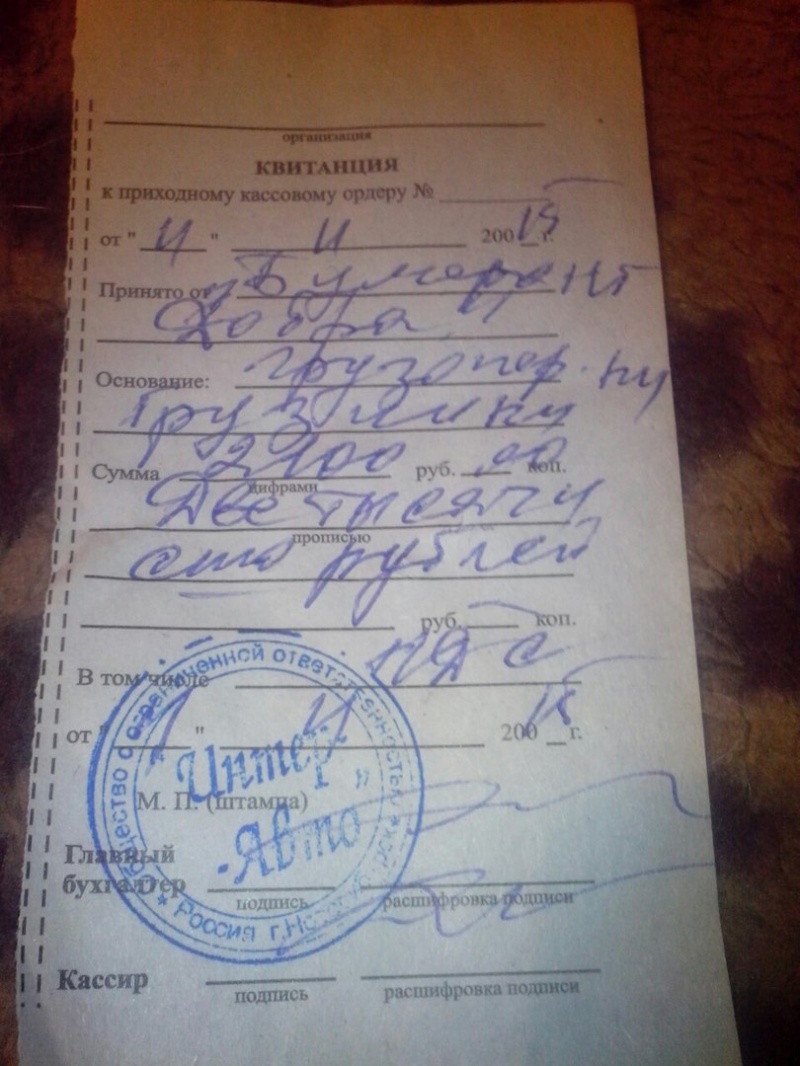 организация
КВИТАНЦИЯ
к приходному кассовому ордеру №
от " 11 " 11 200 15 г.
Принято от "Бумеранг
Добра"
Основание: грузопер.
Сумма 2100 руб. 00 коп.
цифрами
Две тысячи
прописью
сто рублей
руб. коп.
В том числе НДС
от " " 11 200 15 г.
М. П. (штампа)
Главный
бухгалтер
подпись расшифровка подписи
Кассир
подпись расшифровка подписи
Общество с ограниченной ответственностью
"Интер
-Авто"
* Россия г.